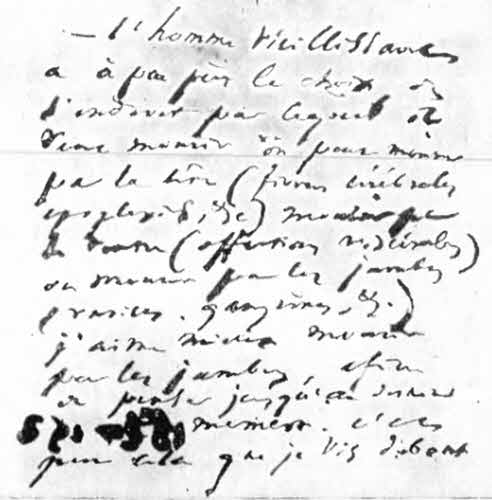 — l'homme vieillissant
a à peu près le choix de
l'endroit par lequel il
veut mourir on peut mourir
par la tête (fièvres cérébrales
apoplexies, &c) mourir par
le ventre (affections viscérales)
ou mourir par les jambes
gangrènes, &c.)
j'aime mieux mourir
par les jambes, afin
de penser jusqu'au dernier
moment. c'est
pour cela que je vis debout